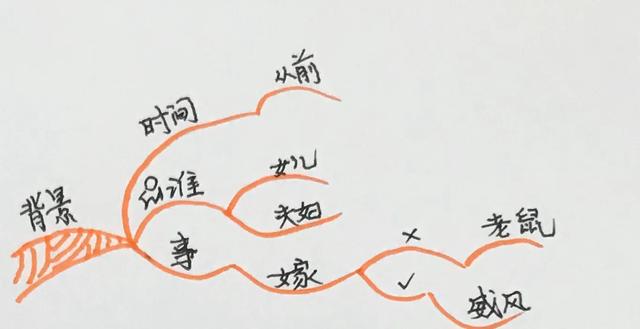 背景
时间
从前
谁
女儿
夫妇
事
嫁
×
老鼠
✓
威风